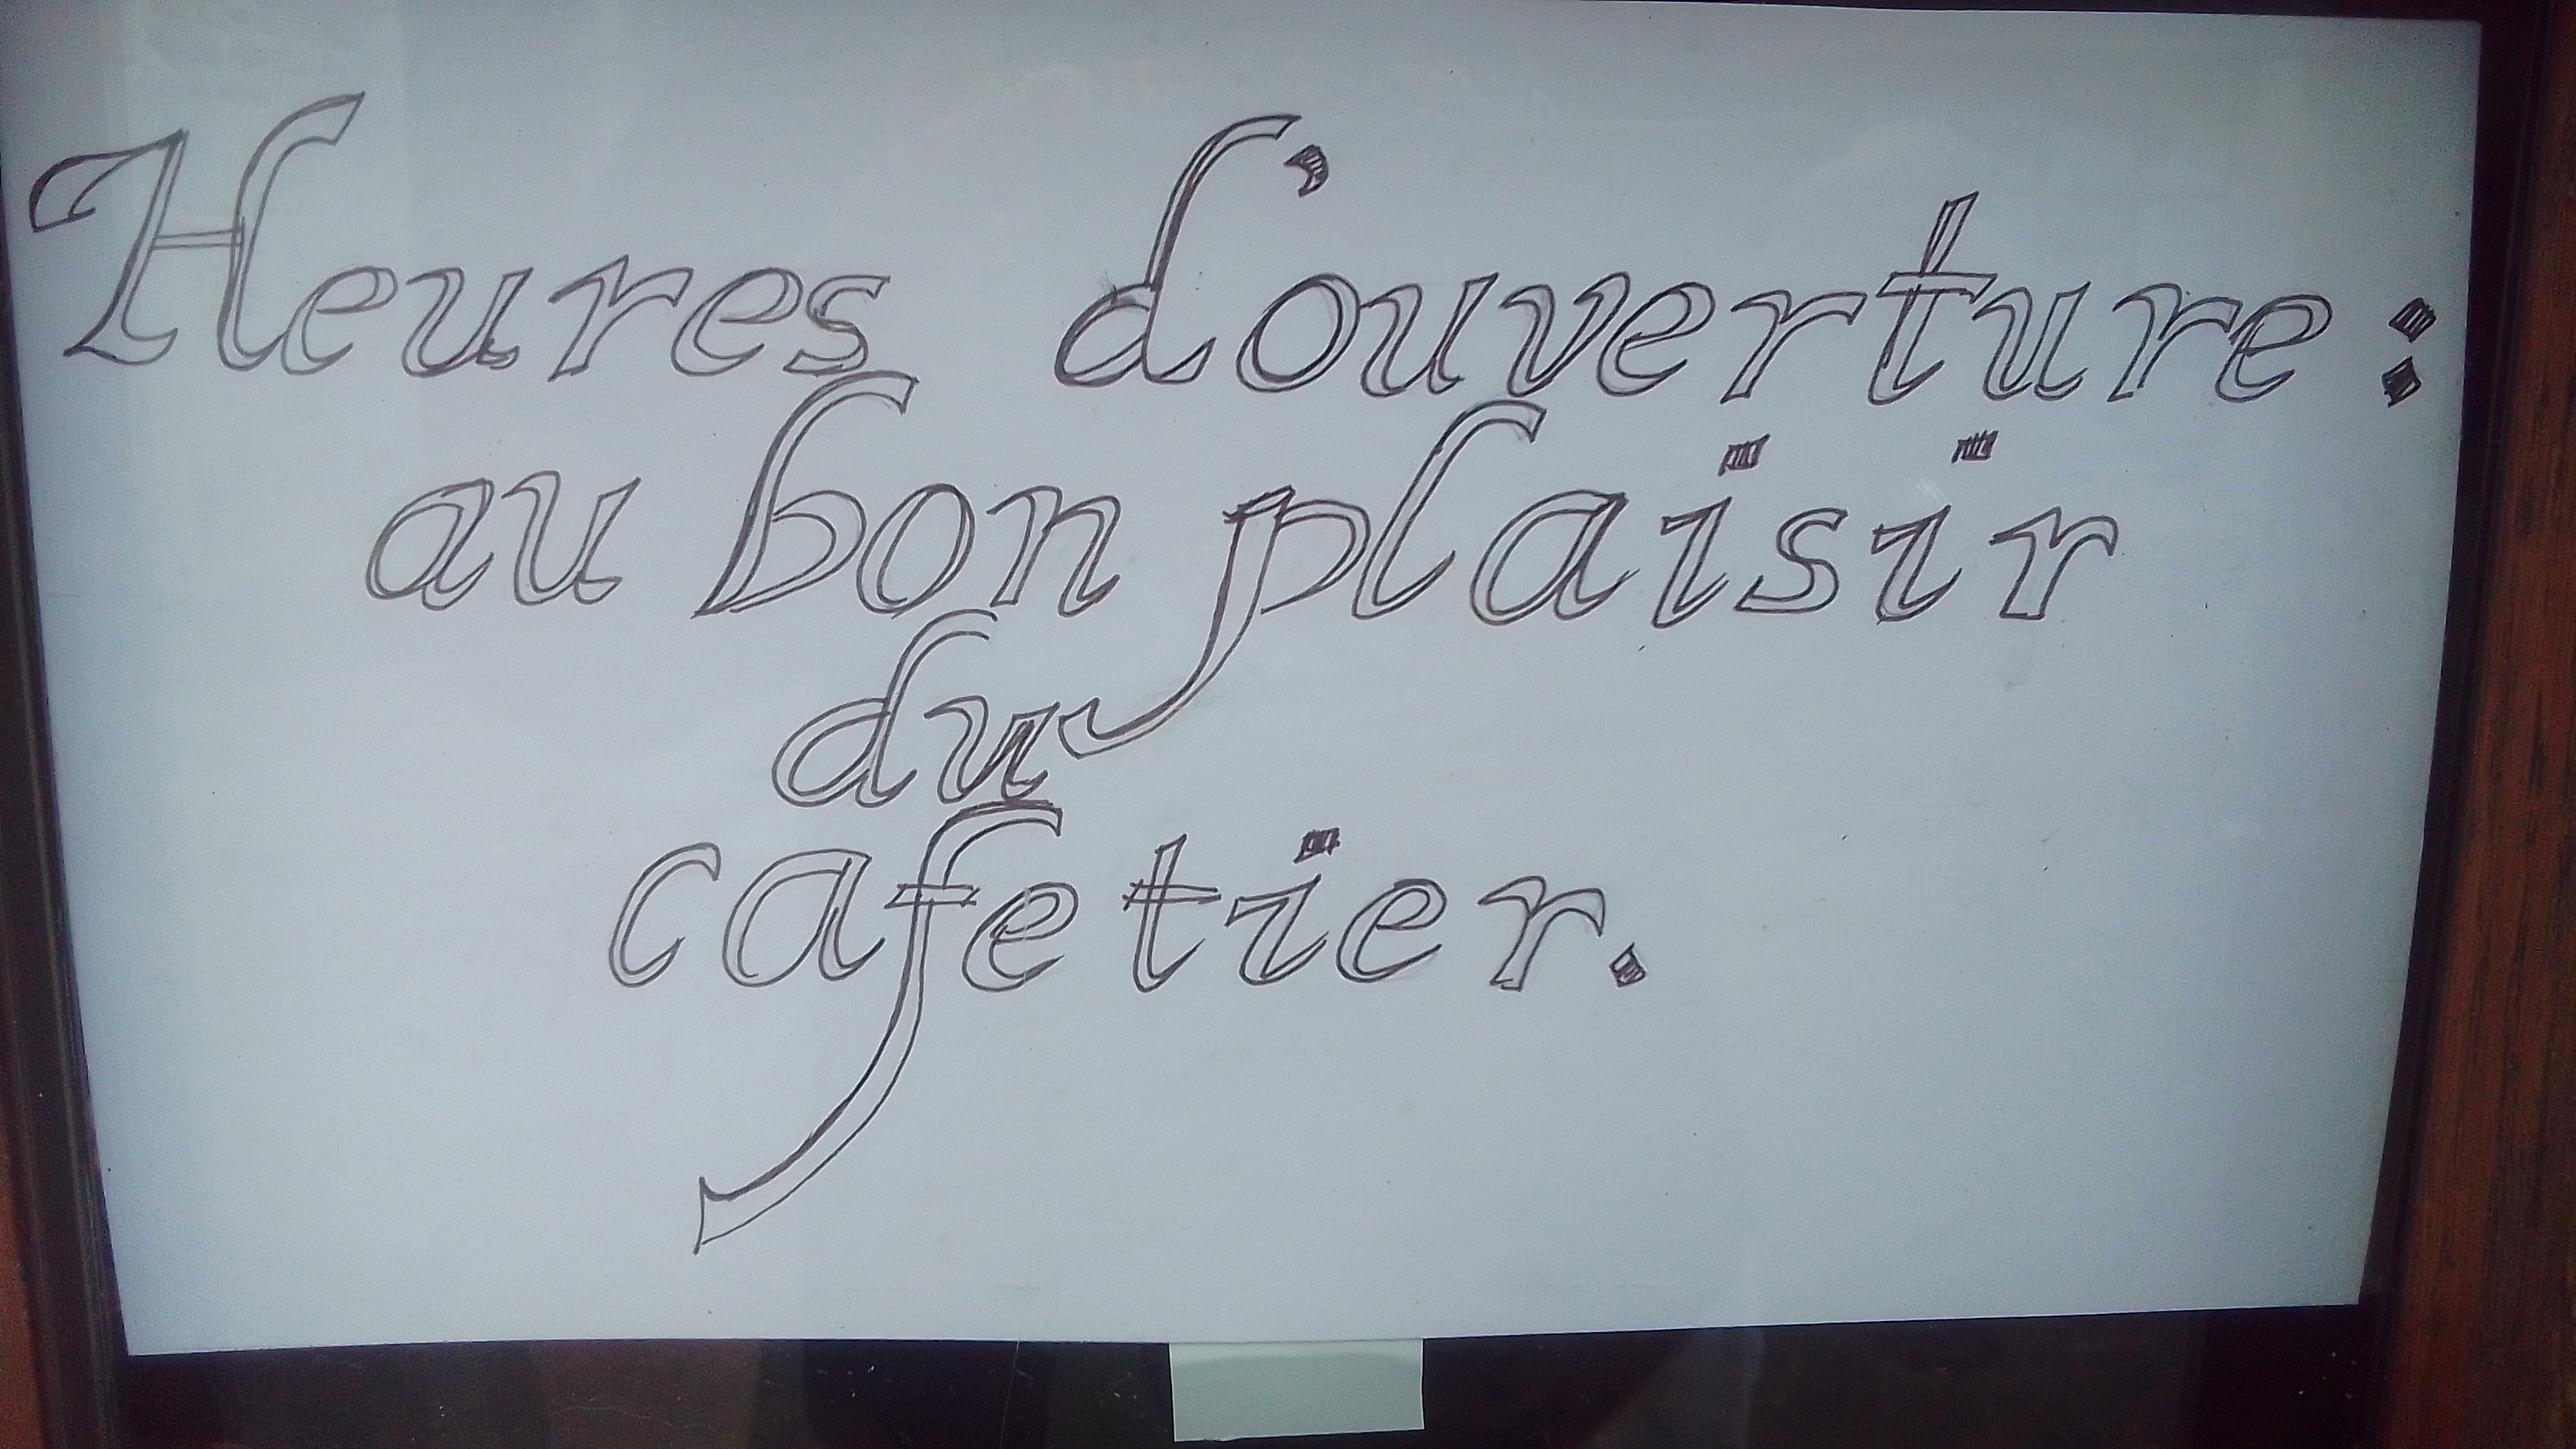 Heures d'ouverture :
au bon plaisir
du
cafetier.